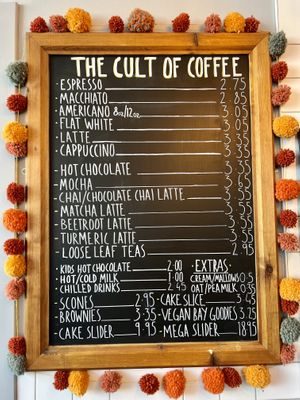 THE CULT OF COFFEE
· ESPRESSO 2.75
· MACCHIATO 2.85
· AMERICANO 8oz/12oz 3.05
· FLAT WHITE 3.05
· LATTE 3.35
· CAPPUCCINO 3.35
· HOT CHOCOLATE
· MOCHA
· CHAI/CHOCOLATE CHAI LATTE
· MATCHA LATTE
· BEETROOT LATTE
· TURMERIC LATTE
· LOOSE LEAF TEAS
· KIDS HOT CHOCOLATE 2.00 · EXTRAS ·
· HOT/COLD MILK 1.00 CREAM/MALLOWS 0.5
· CHILLED DRINKS 2.45 OAT/PEA MILK 0.35
· SCONES 2.95 · CAKE SLICE 3.45
· BROWNIES 3.35 · VEGAN BAY GOODIES 3.75
· CAKE SLIDER 9.95 · MEGA SLIDER 18.95